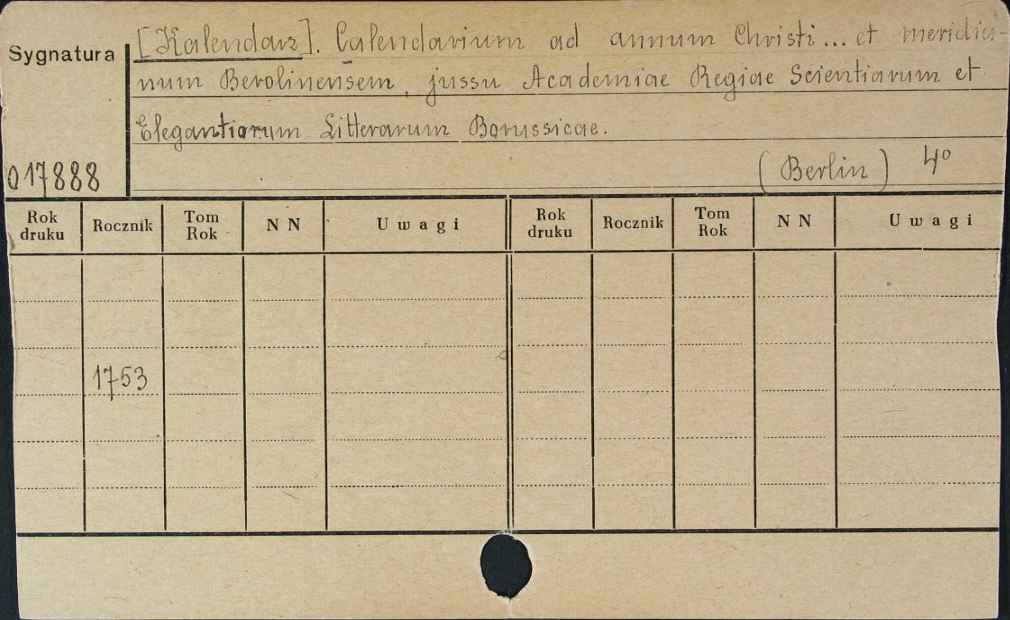 Sygnatura
[Kalendarz]. Calendarium ad annum Christi... et meridia-
num Berolinensem, jussu Academiae Regiae Scientiarum et
Elegantiorum Litterarum Borussicae.
017888
(Berlin) 4o
Rok druku Rocznik Tom Rok NN Uwagi Rok druku Rocznik Tom Rok NN Uwagi
1753